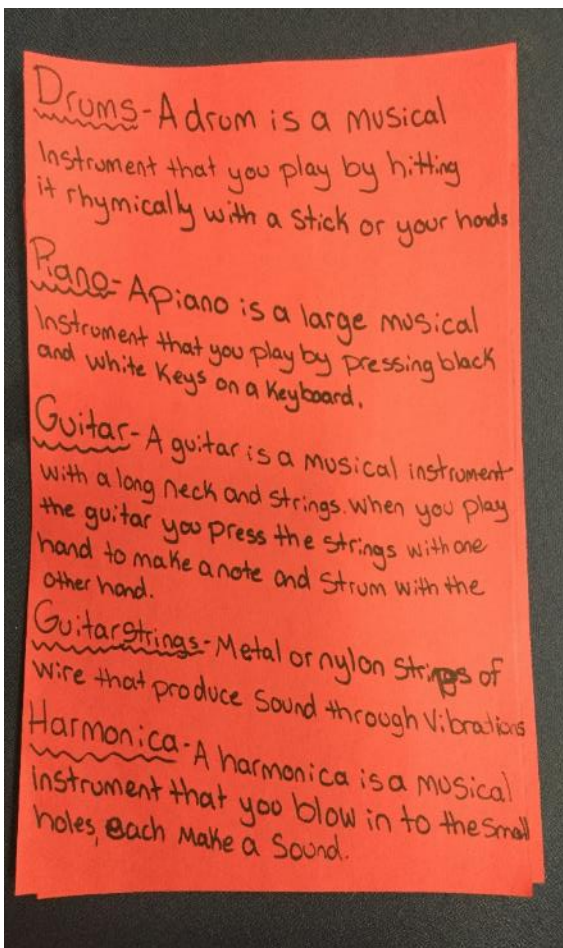 Drums - A drum is a musical
Instrument that you play by hitting
it rhymically with a stick or your hands
Piano - A piano is a large musical
Instrument that you play by pressing black
and white Keys on a Keyboard.
Guitar - A guitar is a musical instrument
with a long neck and strings. When you play
the guitar you press the strings with one
hand to make a note and strum with the
other hand.
Guitar strings - Metal or nylon strings of
wire that produce sound through vibrations
Harmonica - A harmonica is a musical
instrument that you blow in to the small
holes, each make a sound.